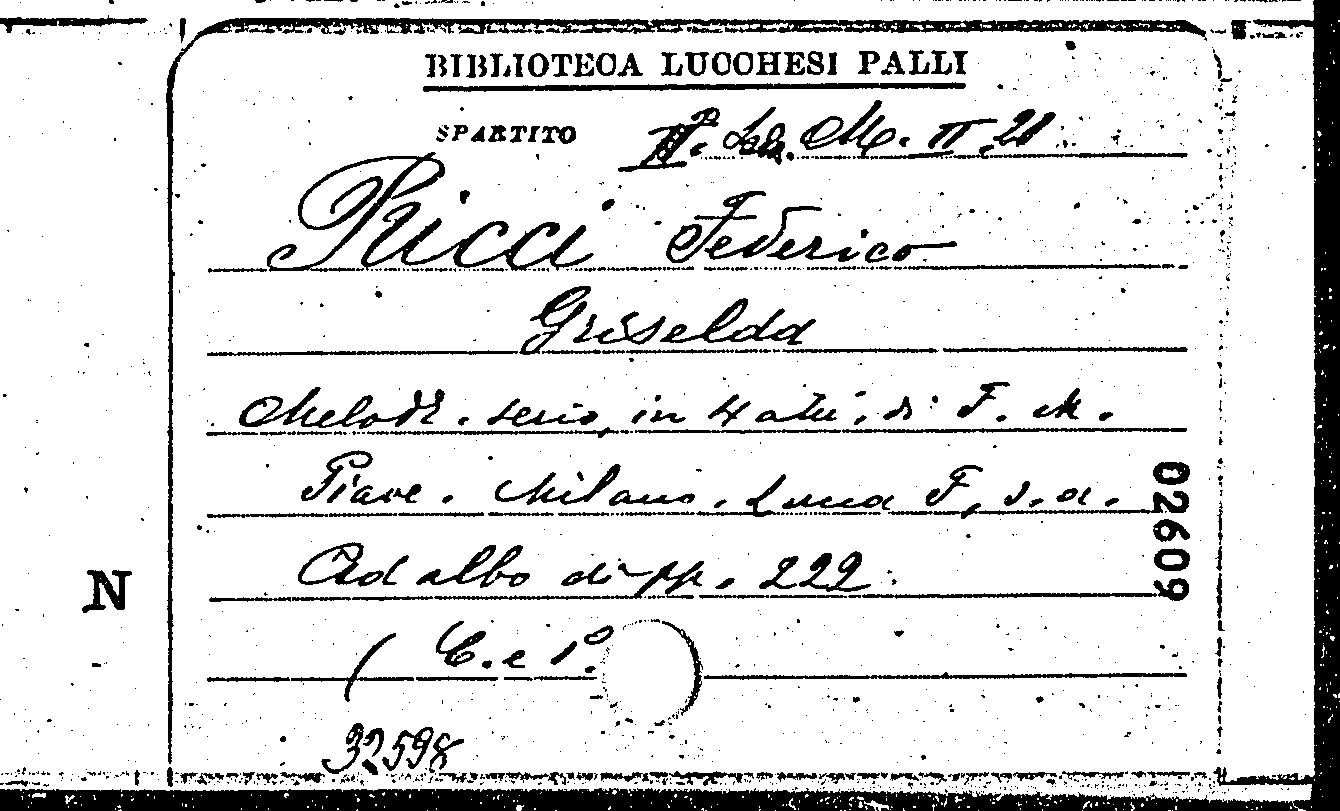 BIBLIOTECA LUCCHESI PALLI
SPARTITO II.ª Sala. M. II. 21
Ricci Federico
Griselda
Melodr. serio, in 4 atti, di F. M.
Piave. Milano. Lucca F, s. a.
Ad albo di pp. 222.
( C. e P.
32598
N
02609